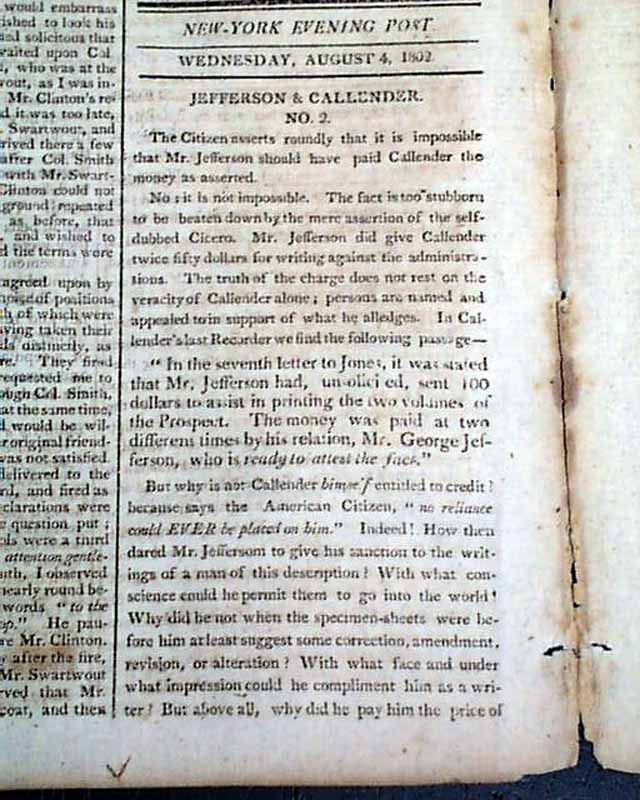 would embarrass
ished to look his
and solicitous that
waited upon Col.
who was at the
wout, as I was in-
Mr. Clinton's re-
d it was too late,
Swartwout, and
rived there a few
after Col. Smith
with Mr. Swart-
Clinton could not
ground; repeated
as before, that
and wished to
d the terms were
agreed upon by
of positions
of which were
ving taken their
distinctly, as
re. They fired
requested me to
ough Col. Smith,
at the same time,
d would be wil-
r original friend-
was not satisfied.
delivered to the
rd, and fired as
clarations were
e question put;
ols were a third
attention gentle-
uth, I observed
nearly round be-
words "to the
up." He pau-
re Mr. Clinton.
after the fire,
Mr. Swartwout
rved that Mr.
coat, and then
NEW-YORK EVENING POST.
WEDNESDAY, AUGUST 4, 1802.
JEFFERSON & CALLENDER.
NO. 2.
The Citizen asserts roundly that it is impossible
that Mr. Jefferson should have paid Callender the
money as asserted.
No: it is not impossible. The fact is too stubborn
to be beaten down by the mere assertion of the self-
dubbed Cicero. Mr. Jefferson did give Callender
twice fifty dollars for writing against the administra-
tions. The truth of the charge does not rest on the
veracity of Callender alone; persons are named and
appealed to in support of what he alledges. In Cal-
lender's last Recorder we find the following passage—
"In the seventh letter to Jones, it was stated
that Mr. Jefferson had, unsolicited, sent 100
dollars to assist in printing the two volumes of
the Prospect. The money was paid at two
different times by his relation, Mr. George Jef-
ferson, who is ready to attest the fact."
But why is not Callender himself entitled to credit?
because says the American Citizen, "no reliance
could EVER be placed on him." Indeed! How then
dared Mr. Jeffersom to give his sanction to the writ-
ings of a man of this description? With what con-
science could he permit them to go into the world!
Why did he not when the specimen-sheets were be-
fore him at least suggest some correction, amendment,
revision, or alteration? With what face and under
what impression could he compliment him as a wri-
ter? But above all, why did he pay him the price of